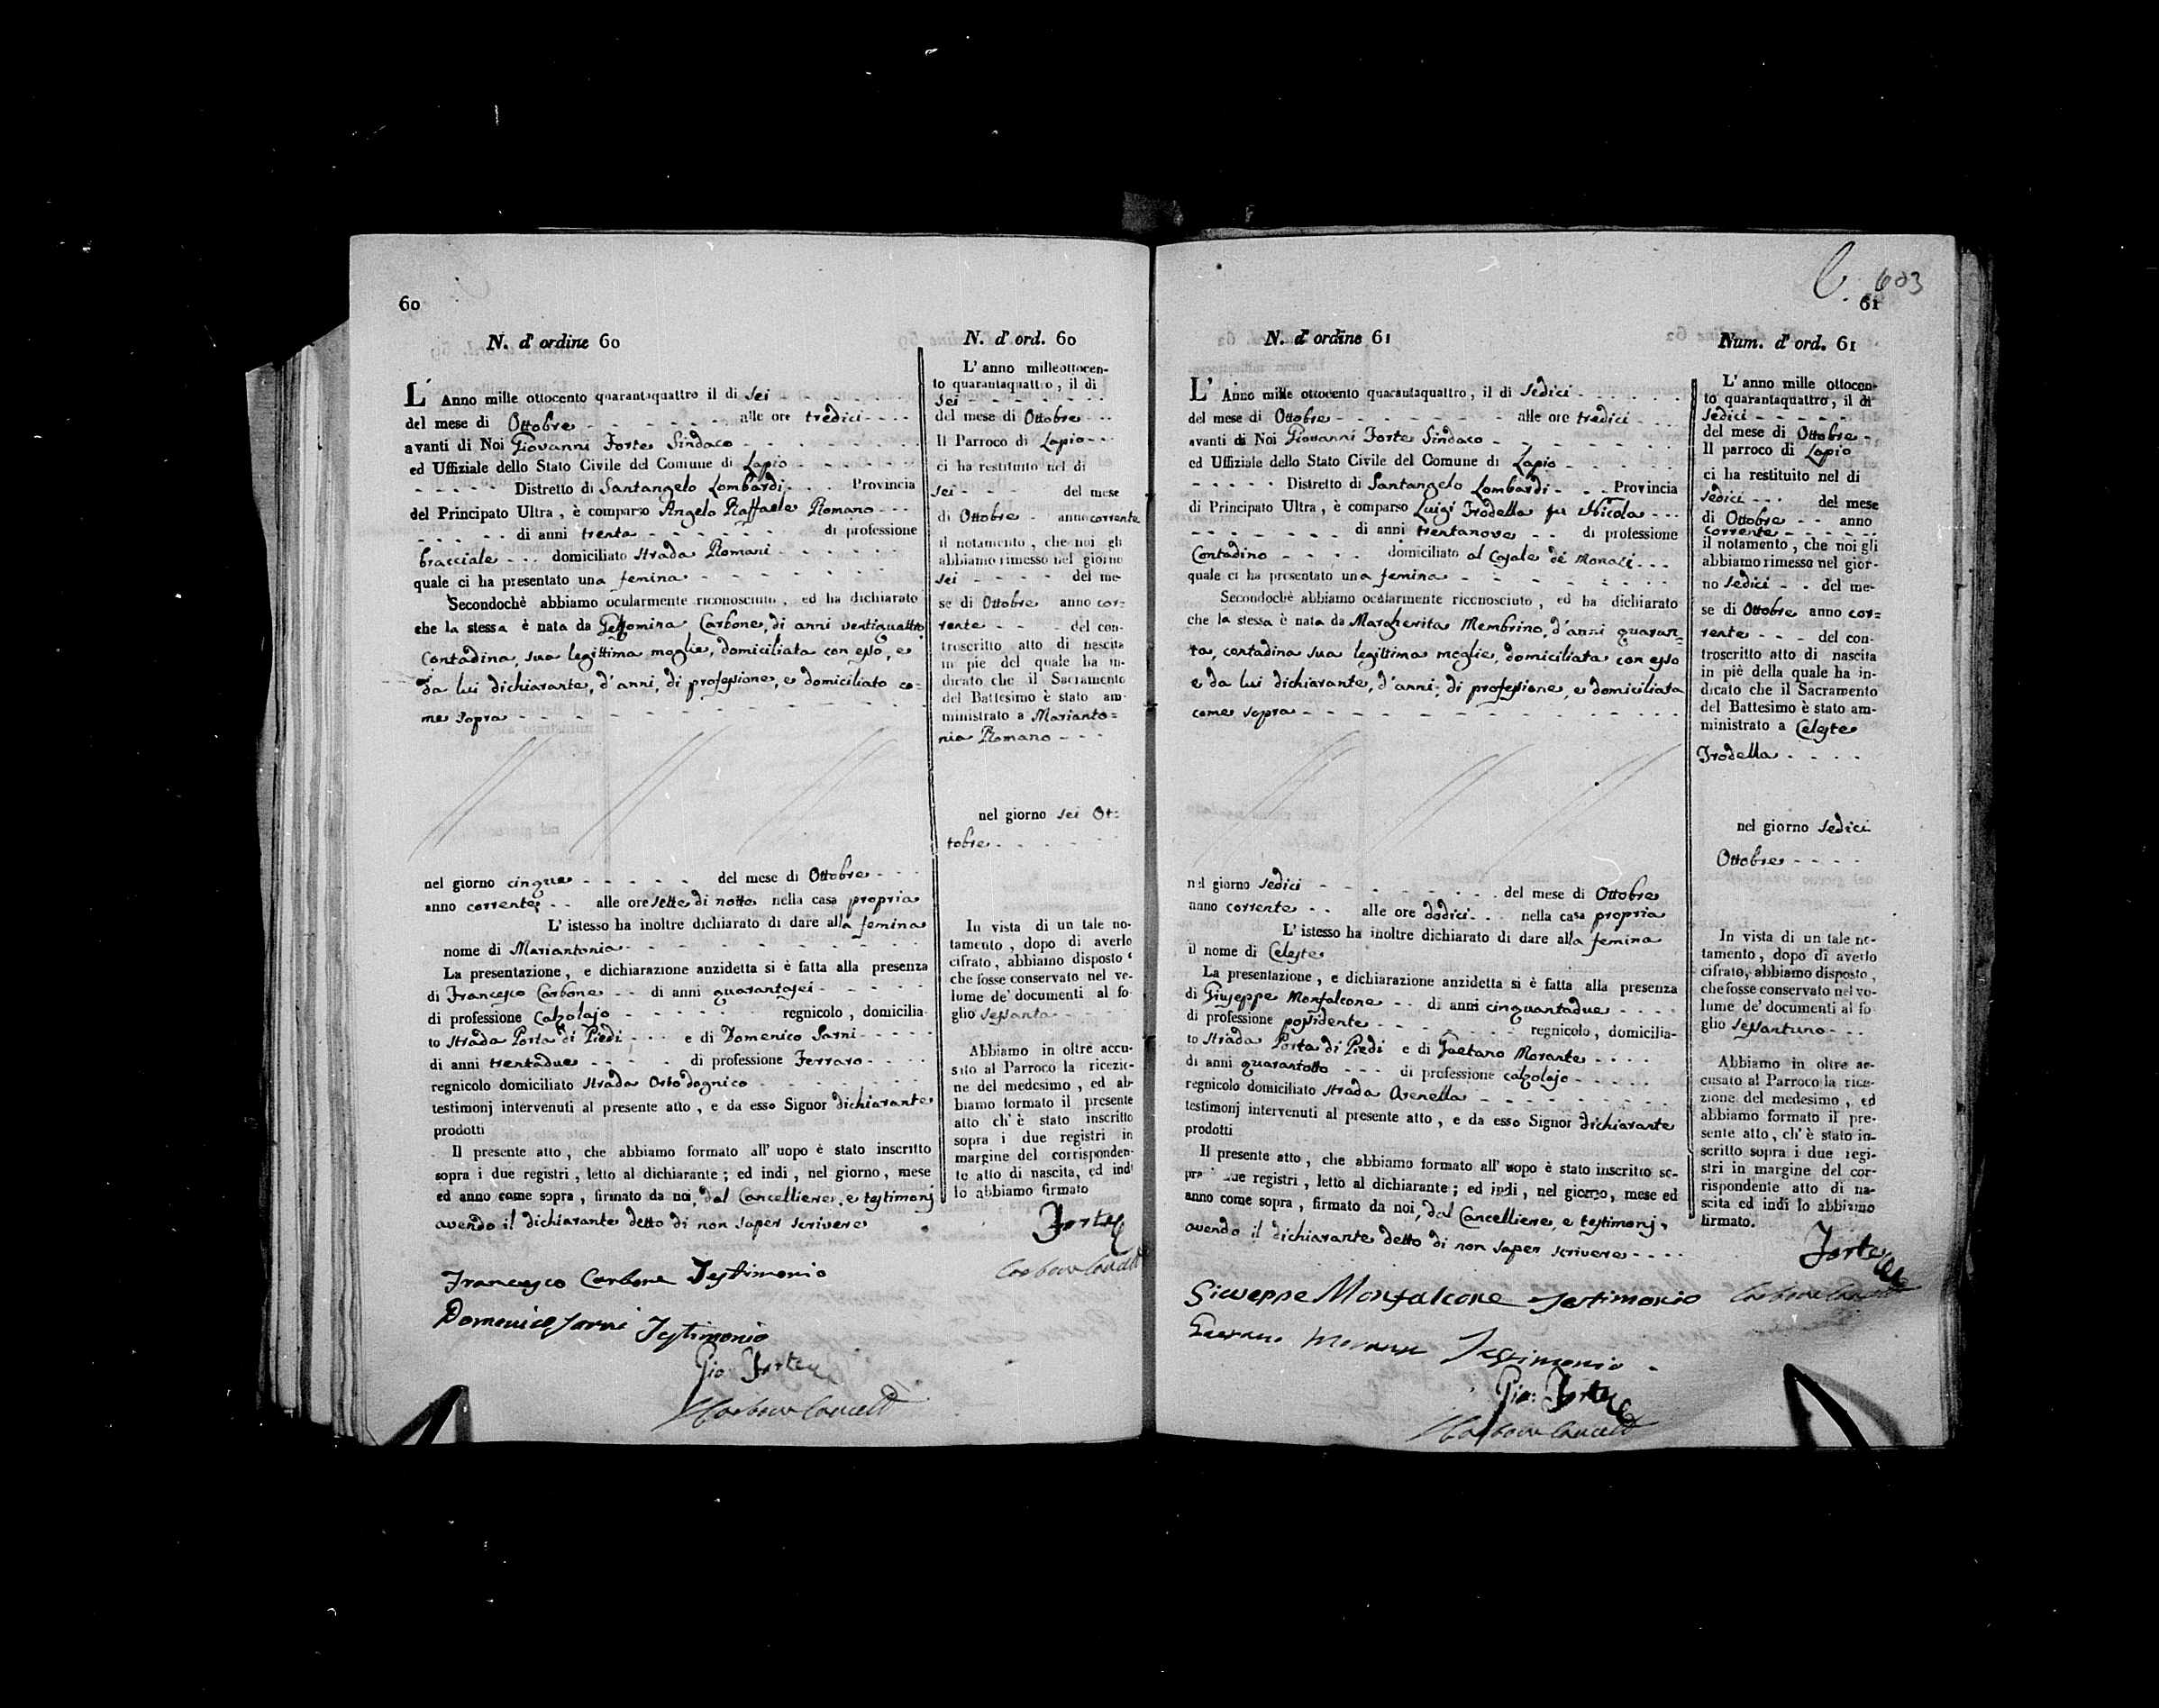 60
N. d' ordine 60
L' Anno mille ottocento quarantaquattro il di sei
del mese di Ottobre alle ore tredici
avanti di Noi Giovanni Forte Sindaco
ed Uffiziale dello Stato Civile del Comune di Lapio
Distretto di Santangelo Lombardi Provincia
del Principato Ultra, è comparso Angelo Raffaele Romano
di anni trenta di professione
bracciale domiciliato strada Romani
quale ci ha presentato una femina
Secondochè abbiamo ocularmente riconosciuto, ed ha dichiarato
che la stessa è nata da Carbone, di anni ventiquattro
Contadina, sua legittima moglie, domiciliata con esso, e
da lui dichiarante, d'anni, di professione, e domiciliato co=
me sopra
nel giorno cinque del mese di Ottobre
anno corrente alle ore sette di notte nella casa propria
L' istesso ha inoltre dichiarato di dare alla femina
nome di Mariantonia
La presentazione, e dichiarazione anzidetta si è fatta alla presenza
di Francesco Carbone di anni quarantasei
di professione Calzolajo regnicolo, domicilia-
to strada Porta di Piedi e di Domenico Sarni
di anni trentadue di professione Ferraro
regnicolo domiciliato strada Ortodagnico
testimonj intervenuti al presente atto, e da esso Signor dichiarante
prodotti
Il presente atto, che abbiamo formato all' uopo è stato inscritto
sopra i due registri, letto al dichiarante; ed indi, nel giorno, mese
ed anno come sopra, firmato da noi, dal Cancelliere, e testimonj
avendo il dichiarante detto di non saper scrivere
Francesco Carbone Testimonio
Domenico Sarni Testimonio
Gio: Forte
Carbone Cancell
N. d' ord. 60
L' anno milleottocen-
to quarantaquattro, il di
sei
del mese di Ottobre
Il Parroco di Lapio
ci ha restituito nel di
sei del mese
di Ottobre anno corrente
il notamento, che noi gli
abbiamo rimesso nel giorno
sei del me-
se di Ottobre anno cor=
rente del con-
troscritto atto di nascita
in piè del quale ha in-
dicato che il Sacramento
del Battesimo è stato am-
ministrato a Marianto=
nia Romano
nel giorno sei Ot=
tobre
In vista di un tale no-
tamento, dopo di averlo
cifrato, abbiamo disposto
che fosse conservato nel vo-
lume de' documenti al fo-
glio sessanta
Abbiamo in oltre accu-
sato al Parroco la ricezio-
ne del medesimo, ed ab-
biamo formato il presente
atto ch' è stato inscritto
sopra i due registri in
margine del corrisponden-
te atto di nascita, ed indi
lo abbiamo firmato
Forte
Carbone Cancell
C. 603
61
N. d' ordine 61
L' Anno mille ottocento quarantaquattro, il di sedici
del mese di Ottobre alle ore tredici
avanti di Noi Giovanni Forte Sindaco
ed Uffiziale dello Stato Civile del Comune di Lapio
Distretto di Santangelo Lombardi Provincia
di Principato Ultra, è comparso Luigi Trodella fu Nicola
di anni trentanove di professione
Contadino domiciliato al Casale de' Monaci
quale ci ha presentato una femina
Secondochè abbiamo ocularmente riconosciuto, ed ha dichiarato
che la stessa è nata da Margherita Membrino, d'anni quaran=
ta, contadina sua legittima moglie, domiciliata con esso
e da lui dichiarante, d'anni, di professione, e domiciliata
come sopra
nel giorno sedici del mese di Ottobre
anno corrente alle ore dodici nella casa propria
L' istesso ha inoltre dichiarato di dare alla femina
il nome di Celeste
La presentazione, e dichiarazione anzidetta si è fatta alla presenza
di Giuseppe Monfalcone di anni cinquantadue
di professione possidente regnicolo, domicilia-
to strada Porta di Piedi e di Gaetano Morante
di anni quarantotto di professione calzolajo
regnicolo domiciliato strada Arenella
testimonj intervenuti al presente atto, e da esso Signor dichiarante
prodotti
Il presente atto, che abbiamo formato all' uopo è stato inscritto so-
pra i due registri, letto al dichiarante; ed indi, nel giorno, mese ed
anno come sopra, firmato da noi, dal Cancelliere, e testimonj,
avendo il dichiarante detto di non saper scrivere
Giuseppe Monfalcone Testimonio
Gaetano Morante Testimonio
Gio: Forte
Carbone Cancell
Num. d' ord. 61
L' anno mille ottocen-
to quarantaquattro, il di
sedici
del mese di Ottobre
Il parroco di Lapio
ci ha restituito nel di
sedici del mese
di Ottobre anno
corrente
il notamento, che noi gli
abbiamo rimesso nel gior-
no sedici del me-
se di Ottobre anno cor=
rente del con-
troscritto atto di nascita
in piè della quale ha in-
dicato che il Sacramento
del Battesimo è stato am-
ministrato a Celeste
Trodella
nel giorno sedici
Ottobre
In vista di un tale no-
tamento, dopo di averlo
cifrato, abbiamo disposto,
che fosse conservato nel vo-
lume de' documenti al fo-
glio sessantuno
Abbiamo in oltre ac-
cusato al Parroco la rice-
zione del medesimo, ed
abbiamo formato il pre-
sente atto, ch' è stato in-
scritto sopra i due regi-
stri in margine del cor-
rispondente atto di na-
scita ed indi lo abbiamo
firmato.
Forte
Carbone Cancell